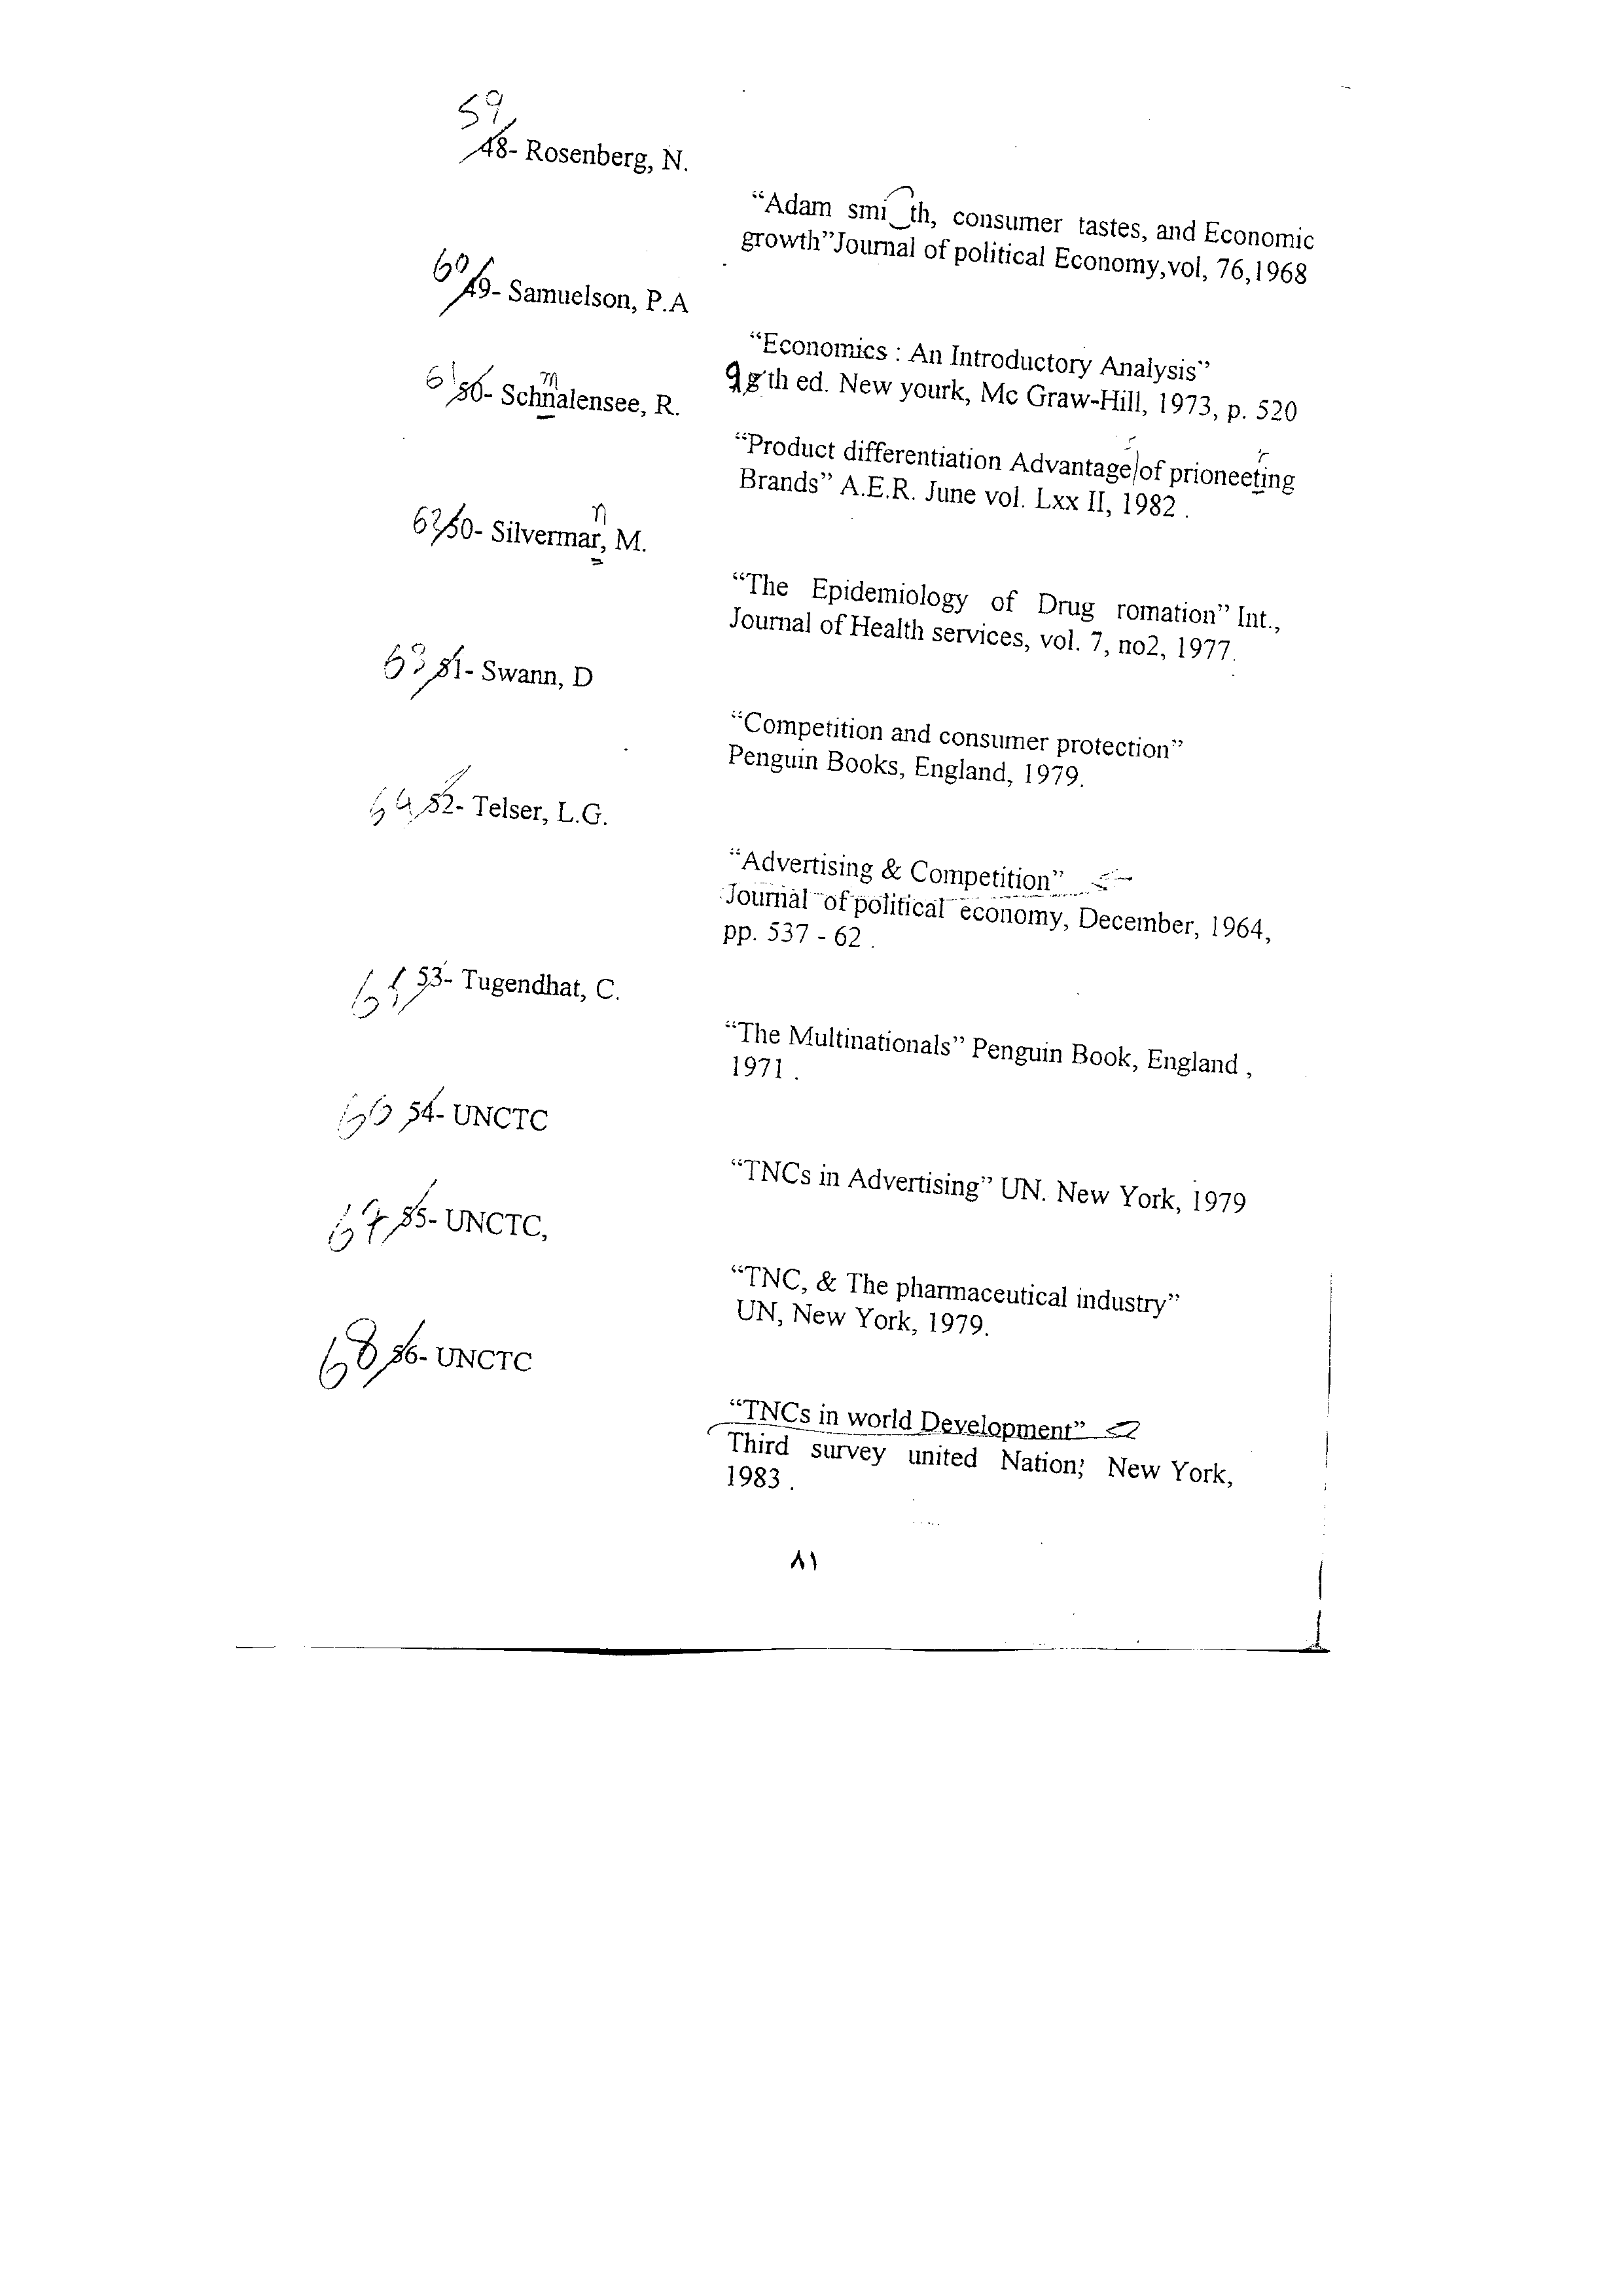 59
48- Rosenberg, N.
“Adam smi th, consumer tastes, and Economic
growth”Journal of political Economy,vol, 76,1968
60
49- Samuelson, P.A
“Economics : An Introductory Analysis”
9 8 th ed. New yourk, Mc Graw-Hill, 1973, p. 520
m
61 50- Schnalensee, R.
s r
“Product differentiation Advantage of prioneeting
Brands” A.E.R. June vol. Lxx II, 1982 .
n
62 50- Silvermar, M.
“The Epidemiology of Drug romation” Int.,
Journal of Health services, vol. 7, no2, 1977.
63 51- Swann, D
“Competition and consumer protection”
Penguin Books, England, 1979.
64 52- Telser, L.G.
“Advertising & Competition”
Journal of political economy, December, 1964,
pp. 537 - 62 .
65 53- Tugendhat, C.
“The Multinationals” Penguin Book, England ,
1971 .
66 54- UNCTC
“TNCs in Advertising” UN. New York, 1979
67 55- UNCTC,
“TNC, & The pharmaceutical industry”
UN, New York, 1979.
68 56- UNCTC
“TNCs in world Development”
Third survey united Nation; New York,
1983 .
٨١